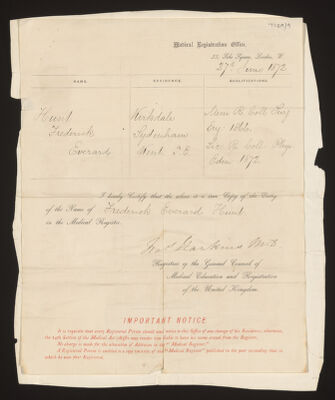 Medical Registration Office,
32, Soho Square, London, W.
27th June 1872
NAME. RESIDENCE. QUALIFICATIONS.
Hunt Kirkdale Mem R. Coll Surg
Frederick Sydenham Eng 1866.
Everard Kent S.E. Lic. R. Coll. Phys
Edin 1872.
I hereby Certify that the above is a true Copy of the Entry
of the Name of Frederick Everard Hunt
in the Medical Register.
Hawkins M.D.
Registrar of the General Council of
Medical Education and Registration
of the United Kingdom.
IMPORTANT NOTICE
It is requisite that every Registered Person should send notice to this Office of any change of his Residence, otherwise,
the 14th Section of the Medical Act (1858) may render him liable to have his name erased from the Register.
No charge is made for the alteration of Addresses in the "Medical Register."
A Registered Person is entitled to a copy of the "Medical Register" published in the year succeeding that in
which he was first Registered.